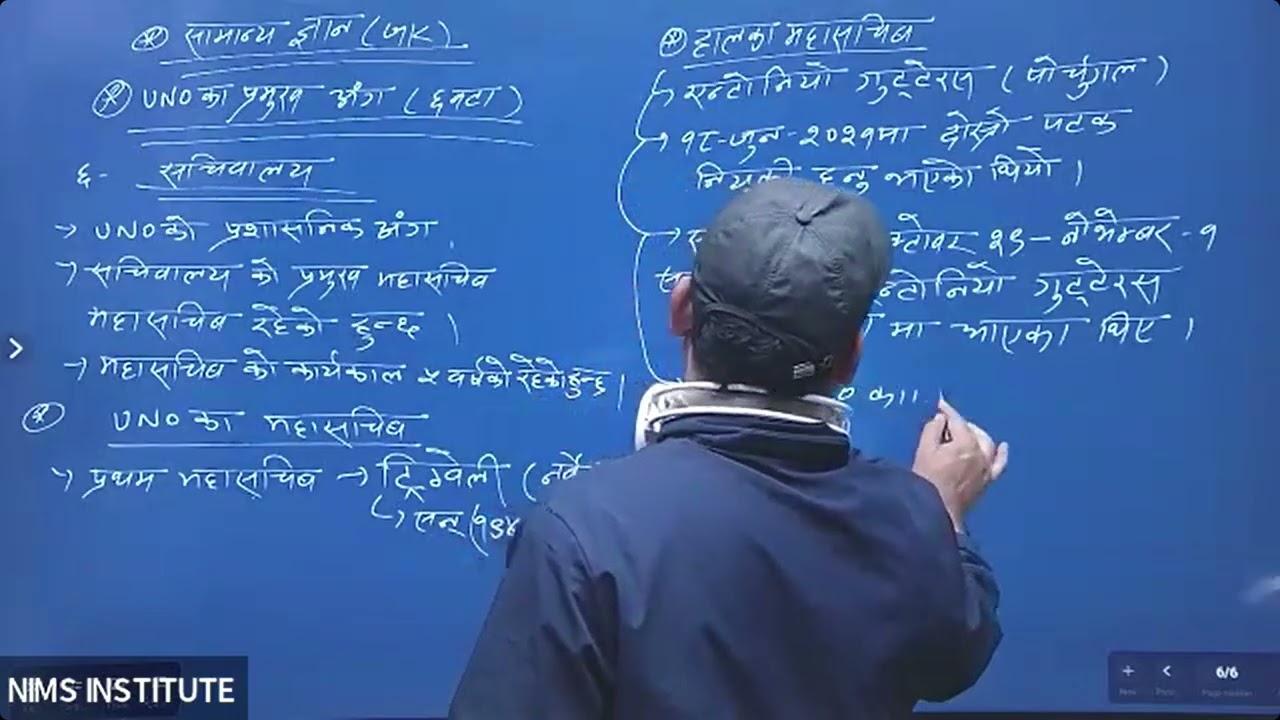 सामान्य ज्ञान (GK)
UNO का प्रमुख अंग (६ वटा)
६- सचिवालय
→ UNO को प्रशासनिक अंग
→ सचिवालय को प्रमुख महासचिव
महासचिव रहेको हुन्छ ।
→ महासचिव को कार्यकाल ५ वर्षको रहेको हुन्छ ।
UNO का महासचिव
→ प्रथम महासचिव → ट्रिग्वेली (नर्वे
→ सन् (१९४
हालका महासचिव
→ एन्टोनियो गुट्टेरस (पोर्चुगल)
→ १८-जुन-२०२१मा दोस्रो पटक
नियुक्ती हुनु भएको थियो ।
→ क्टोबर २९ - नोभेम्बर - १
न्टोनियो गुट्टेरस
मा आएका थिए ।
का
NIMS INSTITUTE
6/6